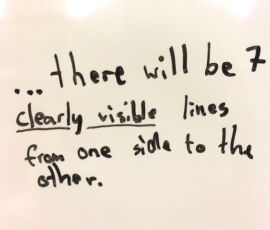 ...there will be 7
clearly visible lines
from one side to the
other.